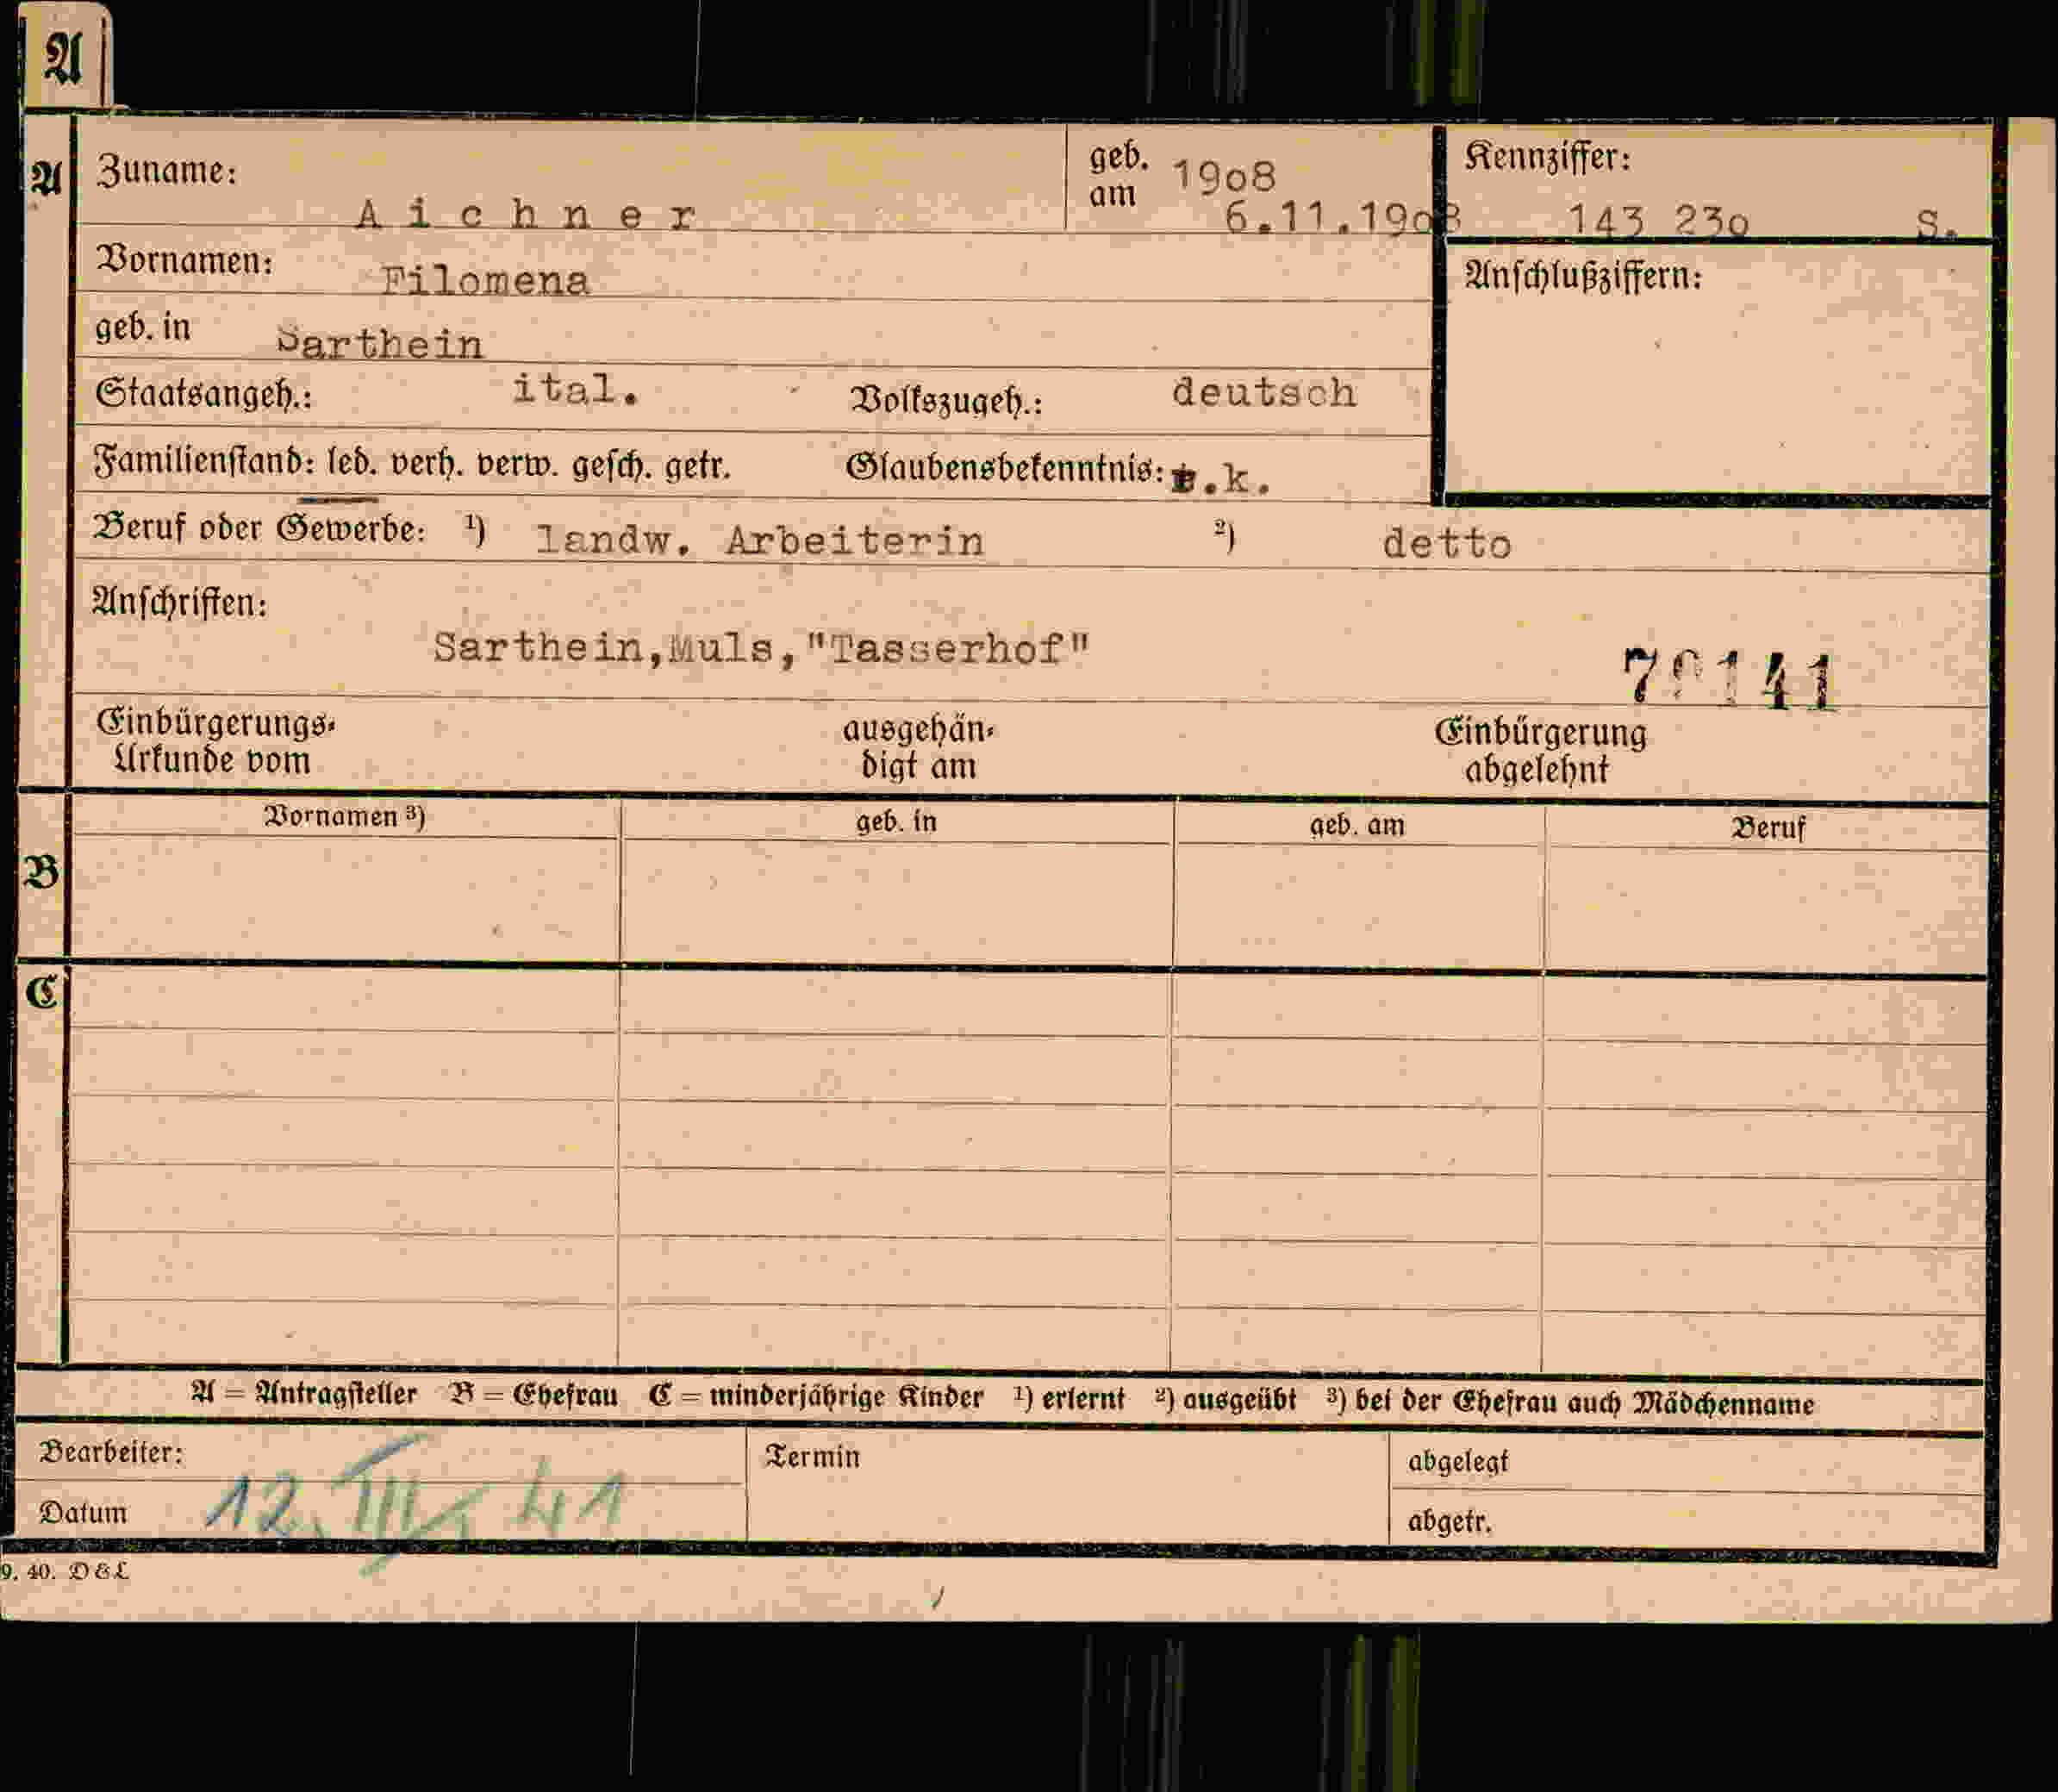 A
A
Zuname: Aichner
geb. am 1908
6.11.1908
Kennziffer: 143 23o S.
Vornamen: Filomena
Anschlußziffern:
geb. in Sarthein
Staatsangeh.: ital. Volkszugeh.: deutsch
Familienstand: led. verh. verw. gesch. getr. Glaubensbekenntnis: r.k.
Beruf oder Gewerbe: 1) landw. Arbeiterin 2) detto
Anschriften:
Sarthein,Muls,"Tasserhof"
Einbürgerungs-
Urkunde vom
ausgehän-
digt am
Einbürgerung
abgelehnt
B
Vornamen 3) geb. in geb. am Beruf
C
A = Antragsteller B = Ehefrau C = minderjährige Kinder 1) erlernt 2) ausgeübt 3) bei der Ehefrau auch Mädchenname
Bearbeiter:
Datum 12. III. 41
Termin
abgelegt
abgetr.
9. 40. D & L